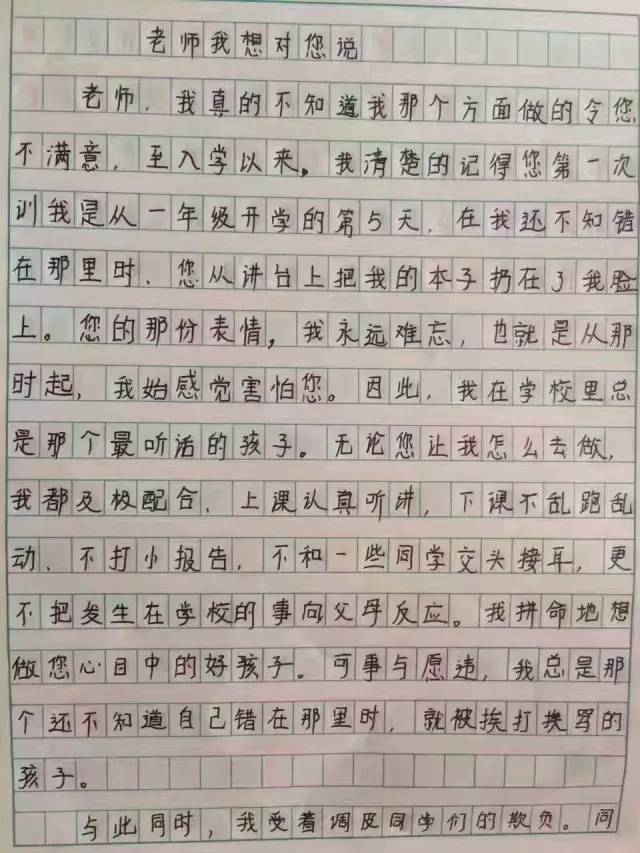 老师我想对您说
老师，我真的不知道我那个方面做的令您
不满意，至入学以来。我清楚的记得您第一次
训我是从一年级开学的第5天，在我还不知错
在那里时、您从讲台上把我的本子扔在了我脸
上。您的那份表情，我永远难忘，也就是从那
时起，我始感觉害怕您。因此，我在学校里总
是那个最听话的孩子。无论您让我怎么去做，
我都及极配合、上课认真听讲，下课不乱跑乱
动、不打小报告，不和一些同学交头接耳，更
不把发生在学校的事向父母反应。我拼命地想
做您心目中的好孩子。可事与愿违，我总是那
个还不知道自己错在那里时，就被挨打挨骂的
孩子。
与此同时，我受着调皮同学们的欺负。同